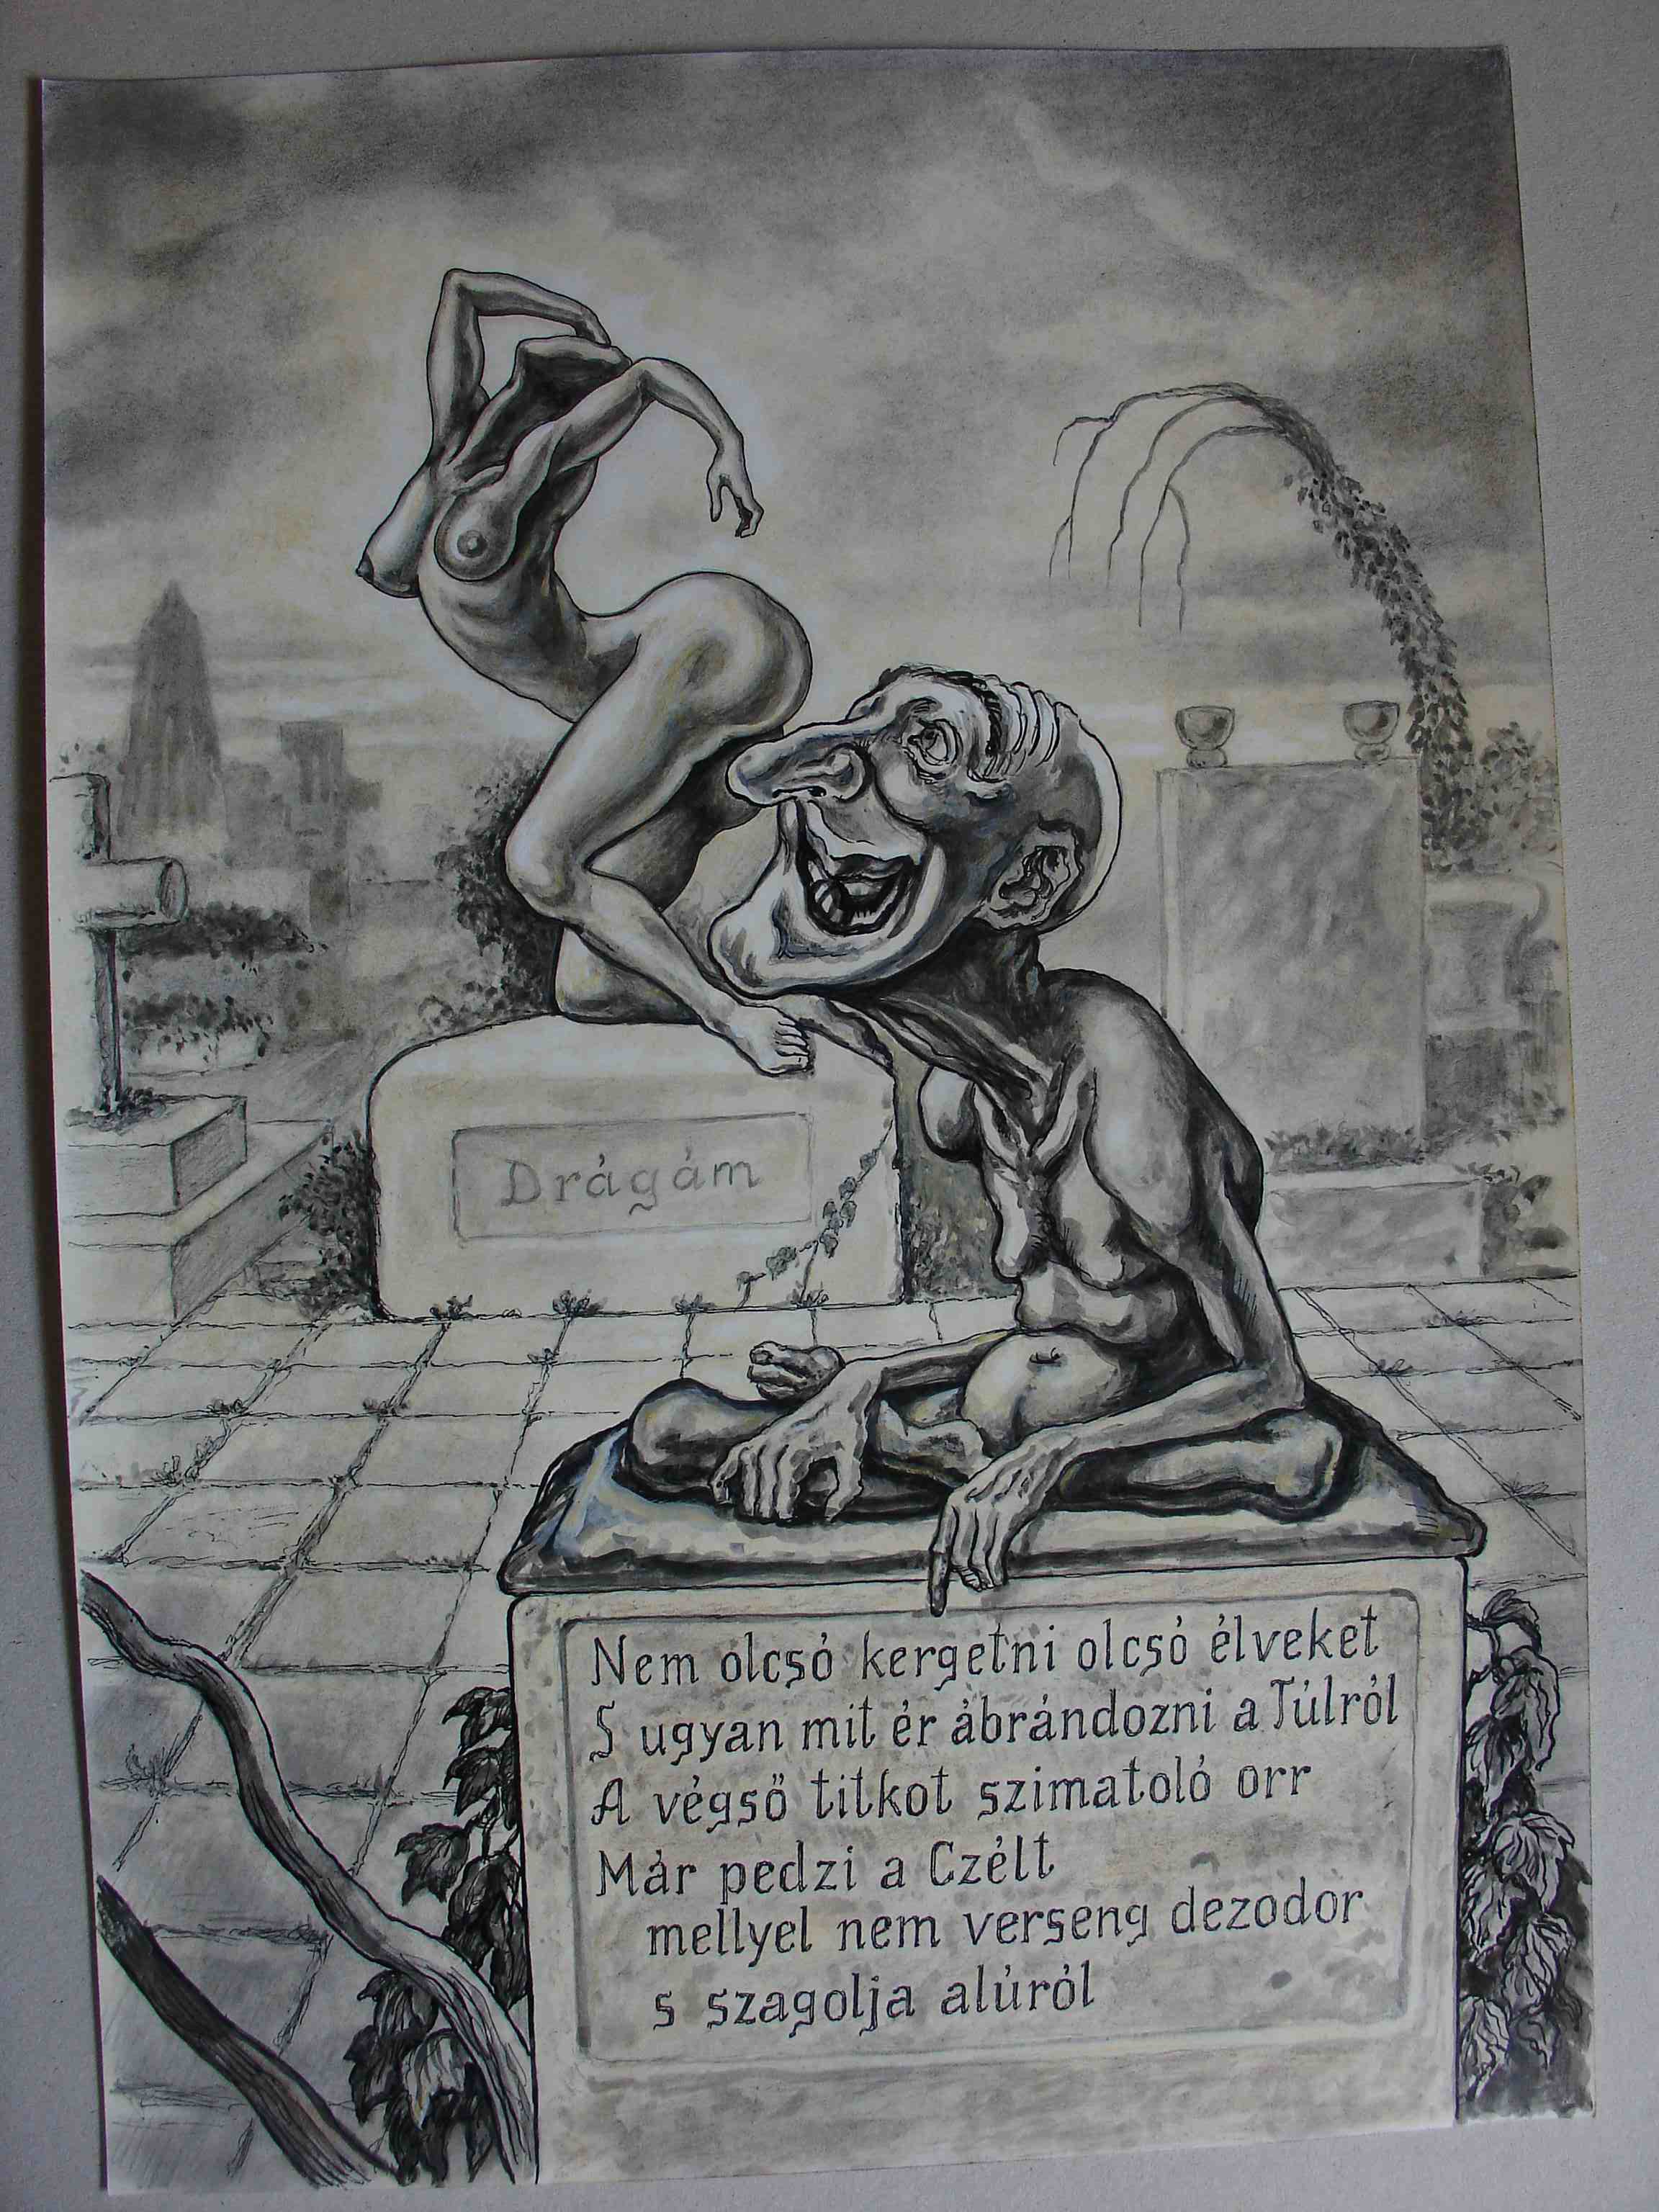 Drágám
Nem olcsó kergetni olcsó élveket
S ugyan mit ér ábrándozni a Túlról
A végső titkot szimatoló orr
Már pedzi a Czélt
mellyel nem verseng dezodor
s szagolja alúról